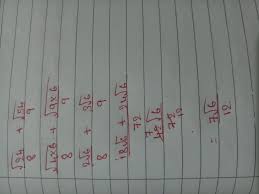 √24/8 + √54/9
√4×6/8 + √9×6/9
2√6/8 + 3√6/9
18√6 + 24√6/72
7 42√6/72 12
= 7√6/12